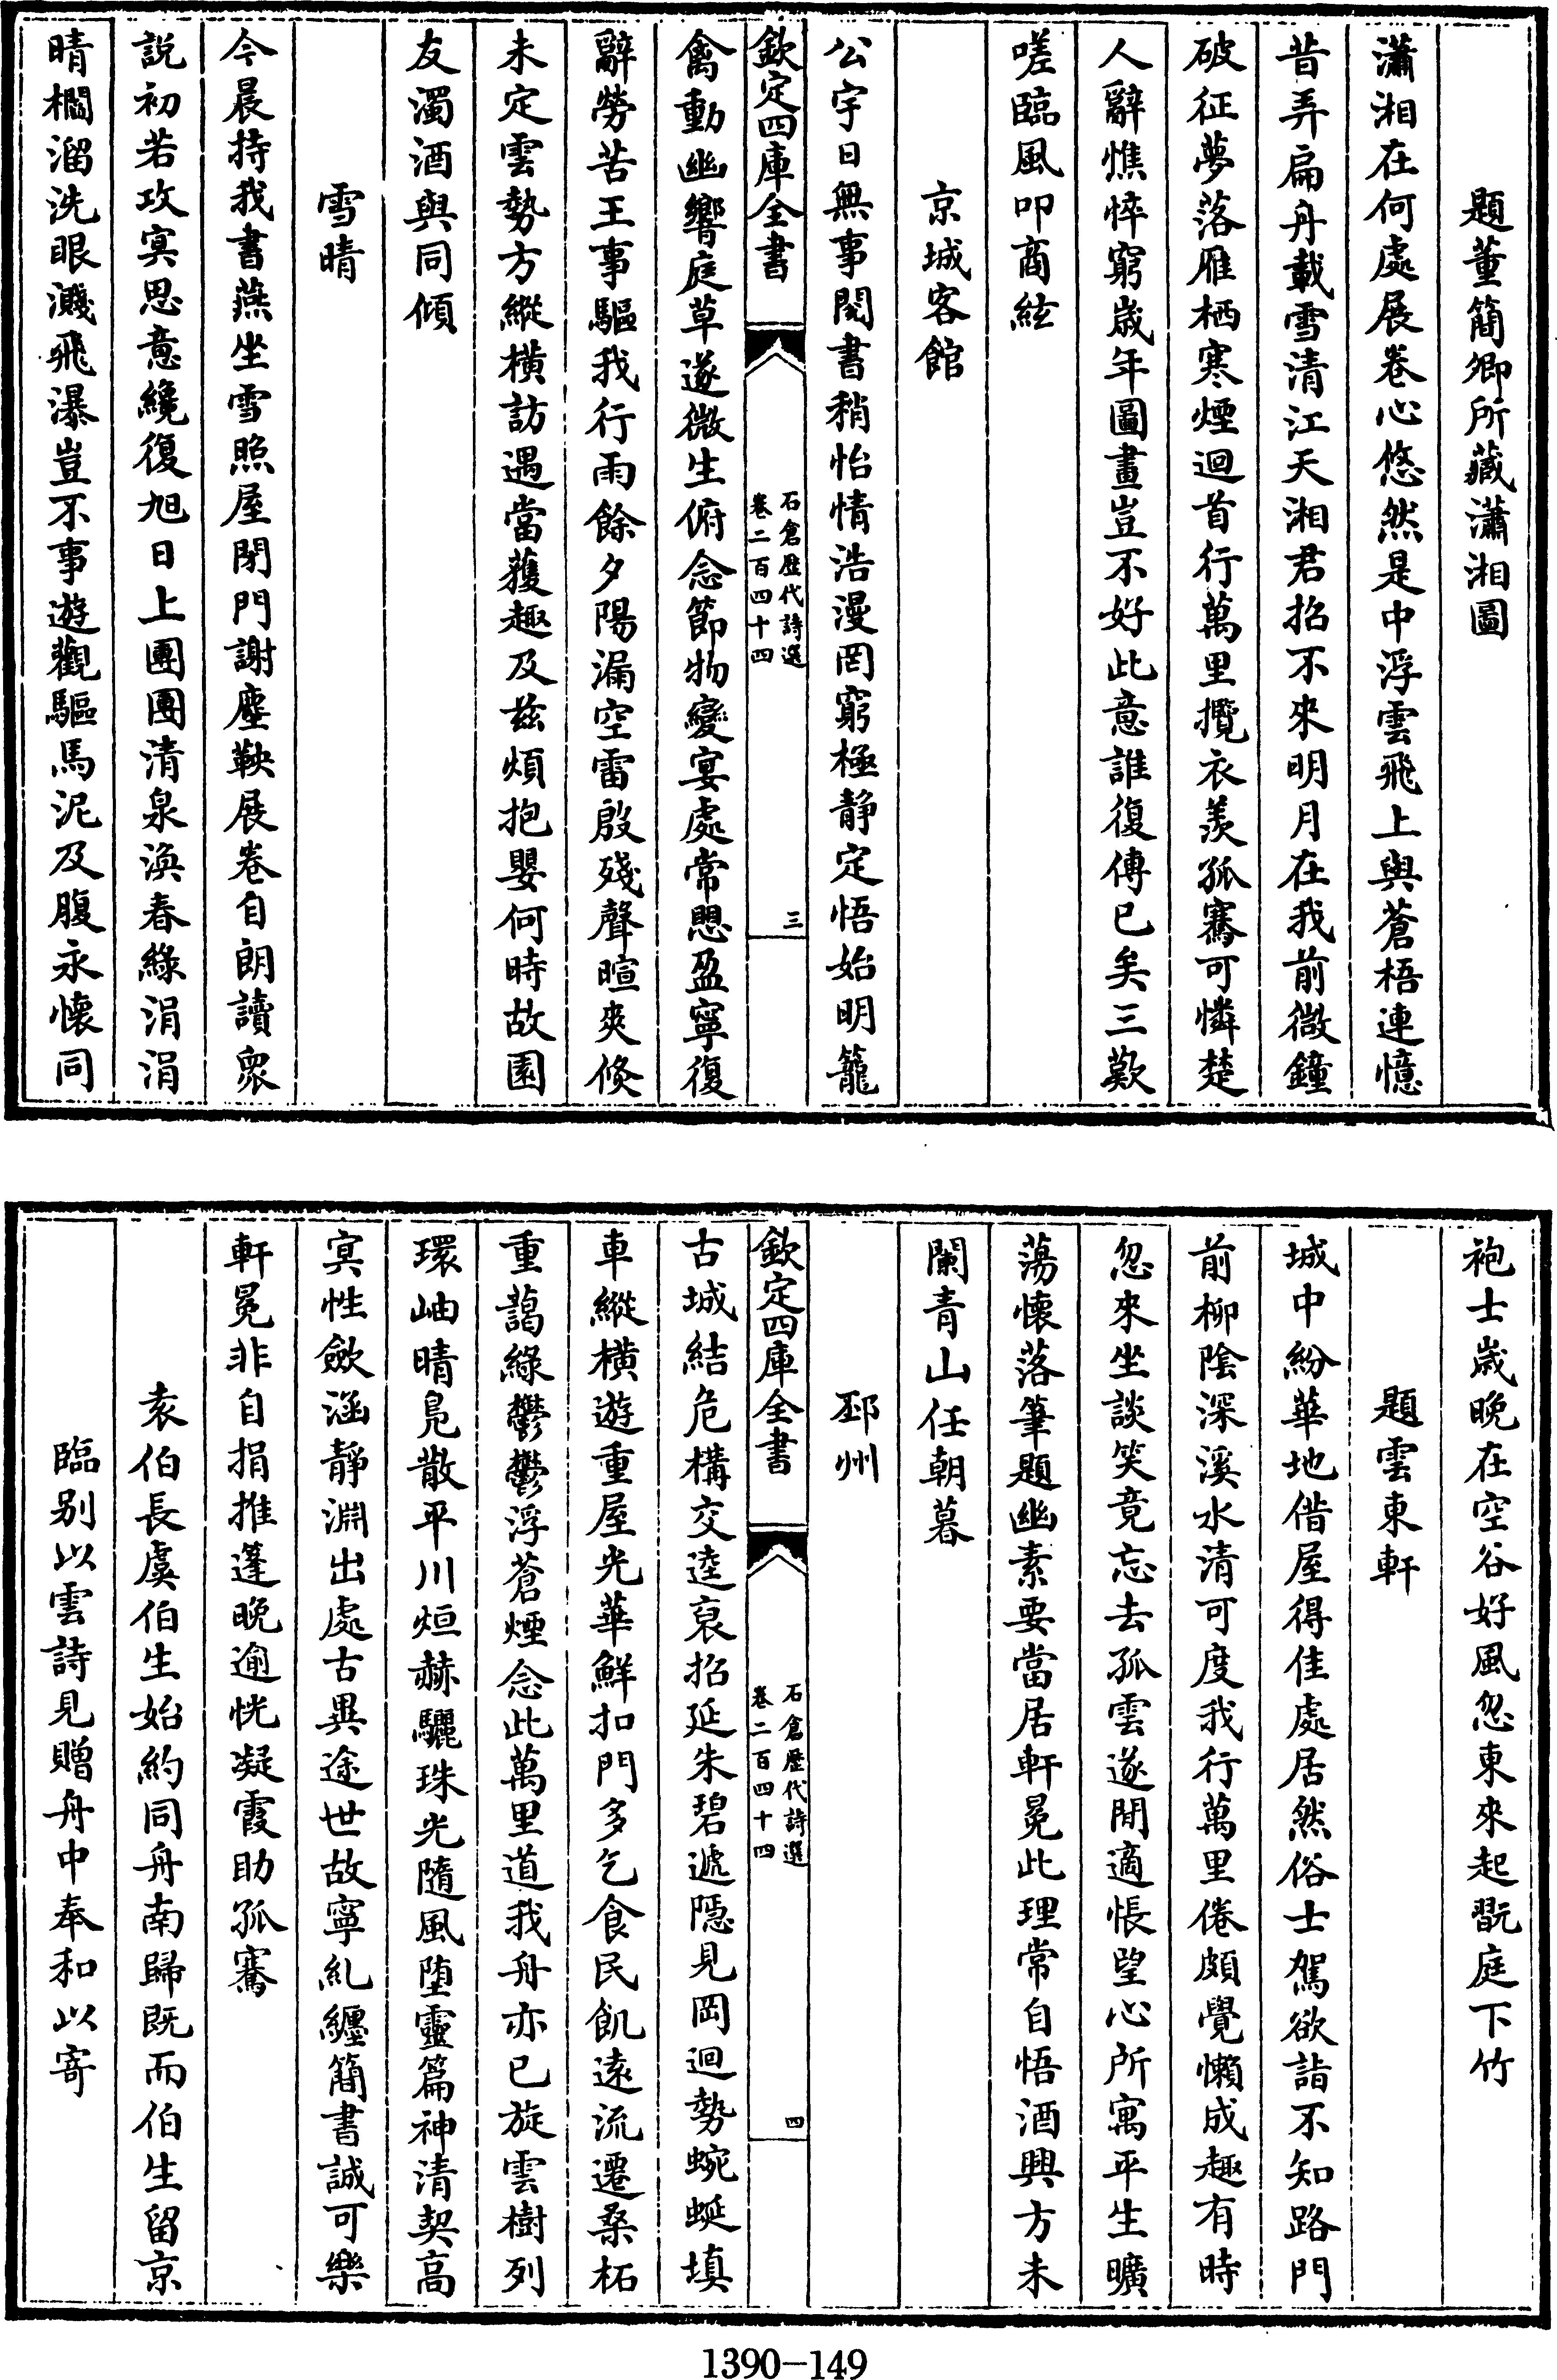 題董簡卿所藏瀟湘圖
瀟湘在何處展卷心悠然是中浮雲飛上與蒼梧連憶
昔弄扁舟載雪清江天湘君招不來明月在我前微鐘
破征夢落雁栖寒煙迴首行萬里攬衣羨孤騫可憐楚
人辭憔悴窮歲年圖畫豈不好此意誰復傳已矣三歎
嗟臨風叩商絃
京城客館
公宇日無事閱書稍怡情浩漫罔窮極静定悟始明籠
欽定四庫全書
石倉歷代詩選
卷二百四十四
三
禽動幽響庭草遂微生俯念節物變宴處常思盈寧復
辭勞苦王事驅我行雨餘夕陽漏空雷殷殘聲暄爽倏
未定雲勢方縱橫訪遇當獲趣及兹煩抱嬰何時故園
友濁酒與同傾
雪晴
今晨持我書燕坐雪照屋閉門謝塵鞅展卷自朗讀衆
說初若攻冥思意纔復旭日上團團清泉渙春綠涓涓
晴櫩溜洗眼濺飛瀑豈不事遊觀驅馬泥及腹永懷同
袍士歲晚在空谷好風忽東來起翫庭下竹
題雲東軒
城中紛華地借屋得佳處居然俗士駕欲詣不知路門
前柳陰深溪水清可度我行萬里倦頗覺懶成趣有時
忽來坐談笑竟忘去孤雲遂閒適悵望心所寓平生曠
蕩懷落筆題幽素要當居軒冕此理常自悟酒興方未
闌青山任朝暮
邳州
欽定四庫全書
石倉歷代詩選
卷二百四十四
四
古城結危構交逵裒招延朱碧遞隱見岡迴勢蜿蜒填
車縱橫遊重屋光華鮮扣門多乞食民飢遠流遷桑柘
重藹綠鬱鬱浮蒼煙念此萬里道我舟亦已旋雲樹列
環岫晴鳧散平川烜赫驪珠光隨風墮靈篇神清契高
冥性斂涵靜淵出處古異途世故寧糺纏簡書誠可樂
軒冕非自捐推蓬晚逾恍凝霞助孤騫
袁伯長虞伯生始約同舟南歸既而伯生留京
臨别以雲詩見贈舟中奉和以寄
1390-149